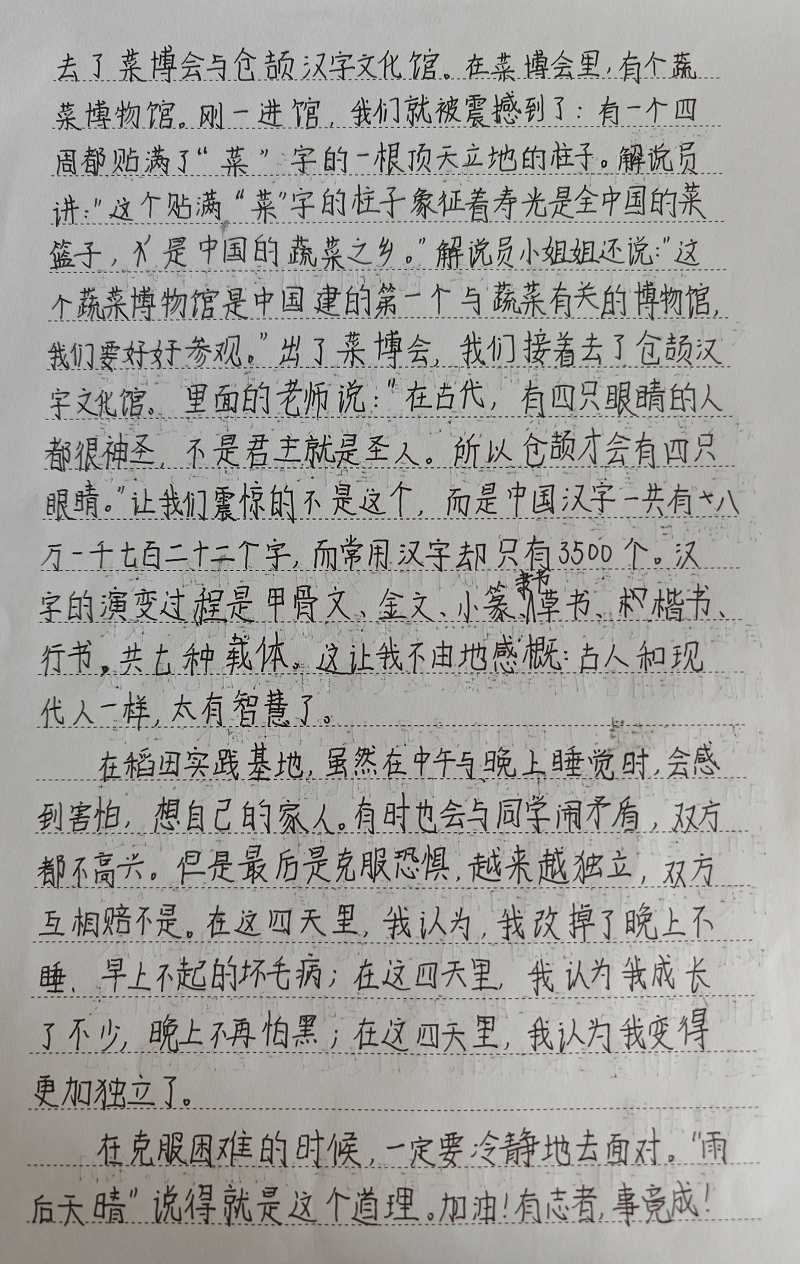 去了菜博会与仓颉汉字文化馆。在菜博会里,有个蔬
菜博物馆。刚一进馆,我们就被震撼到了:有一个四
周都贴满了“菜”字的一根顶天立地的柱子。解说员
讲:“这个贴满“菜”字的柱子象征着寿光是全中国的菜
篮子,是中国的蔬菜之乡。”解说员小姐姐还说:“这
个蔬菜博物馆是中国建的第一个与蔬菜有关的博物馆,
我们要好好参观。”出了菜博会,我们接着去了仓颉汉
字文化馆。里面的老师说:“在古代,有四只眼睛的人
都很神圣,不是君主就是圣人。所以仓颉才会有四只
眼睛。”让我们震惊的不是这个,而是中国汉字一共有十八
万一千七百二十二个字,而常用汉字却只有3500个。汉
字的演变过程是甲骨文、金文、小篆、隶书、草书、楷书、
行书,共七种载体。这让我不由地感概:古人和现
代人一样,太有智慧了。
在稻田实践基地,虽然在中午与晚上睡觉时,会感
到害怕,想自己的家人。有时也会与同学闹矛盾,双方
都不高兴。但是最后是克服恐惧,越来越独立,双方
互相赔不是。在这四天里,我认为,我改掉了晚上不
睡、早上不起的坏毛病;在这四天里,我认为我成长
了不少,晚上不再怕黑;在这四天里,我认为我变得
更加独立了。
在克服困难的时候,一定要冷静地去面对。“雨
后天晴”说得就是这个道理。加油!有志者,事竟成!